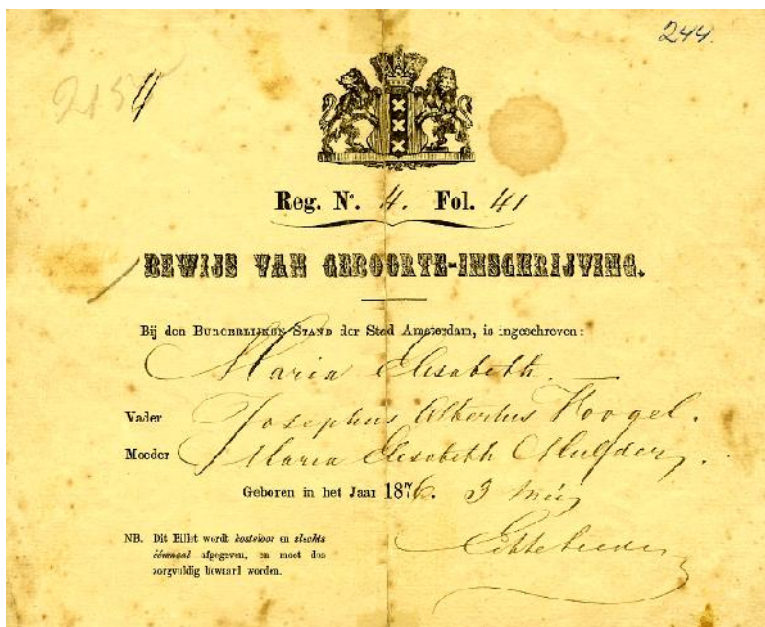 244.
Reg. No. 4. Fol. 41
BEWIJS VAN GEBOORTE-INSCHRIJVING.
Bij den BURGERLIJKEN STAND der Stad Amsterdam, is ingeschreven:
Maria Elisabeth
Vader Josephus Albertus Koogel.
Moeder Maria Elisabeth Mulder.
Geboren in het Jaar 1876. 3 Mei
NB. Dit Billet wordt kosteloos en slechts
éénmaal afgegeven, en moet dus
zorgvuldig bewaard worden.